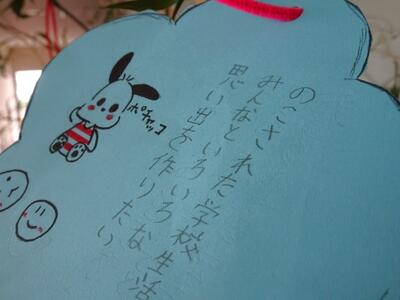 のこされた学校生活
みんなといろいろな
思い出を作りたい
ポチャッコ